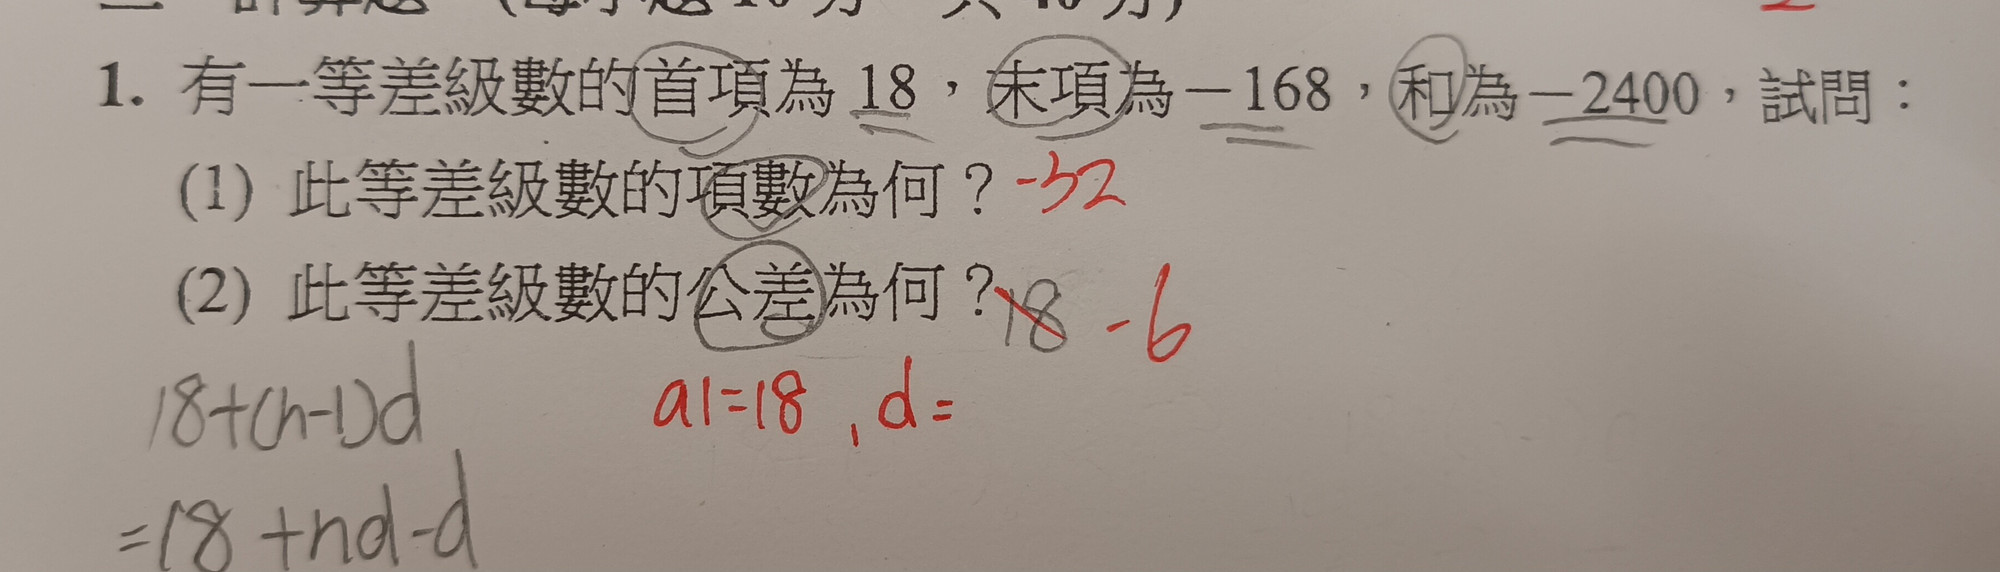 1. 有一等差級數的首項為 18，末項為－168，和為－2400，試問：
(1) 此等差級數的項數為何？ -32
(2) 此等差級數的公差為何？ 18 -6
18+(n-1)d a1=18, d=
=18+nd-d